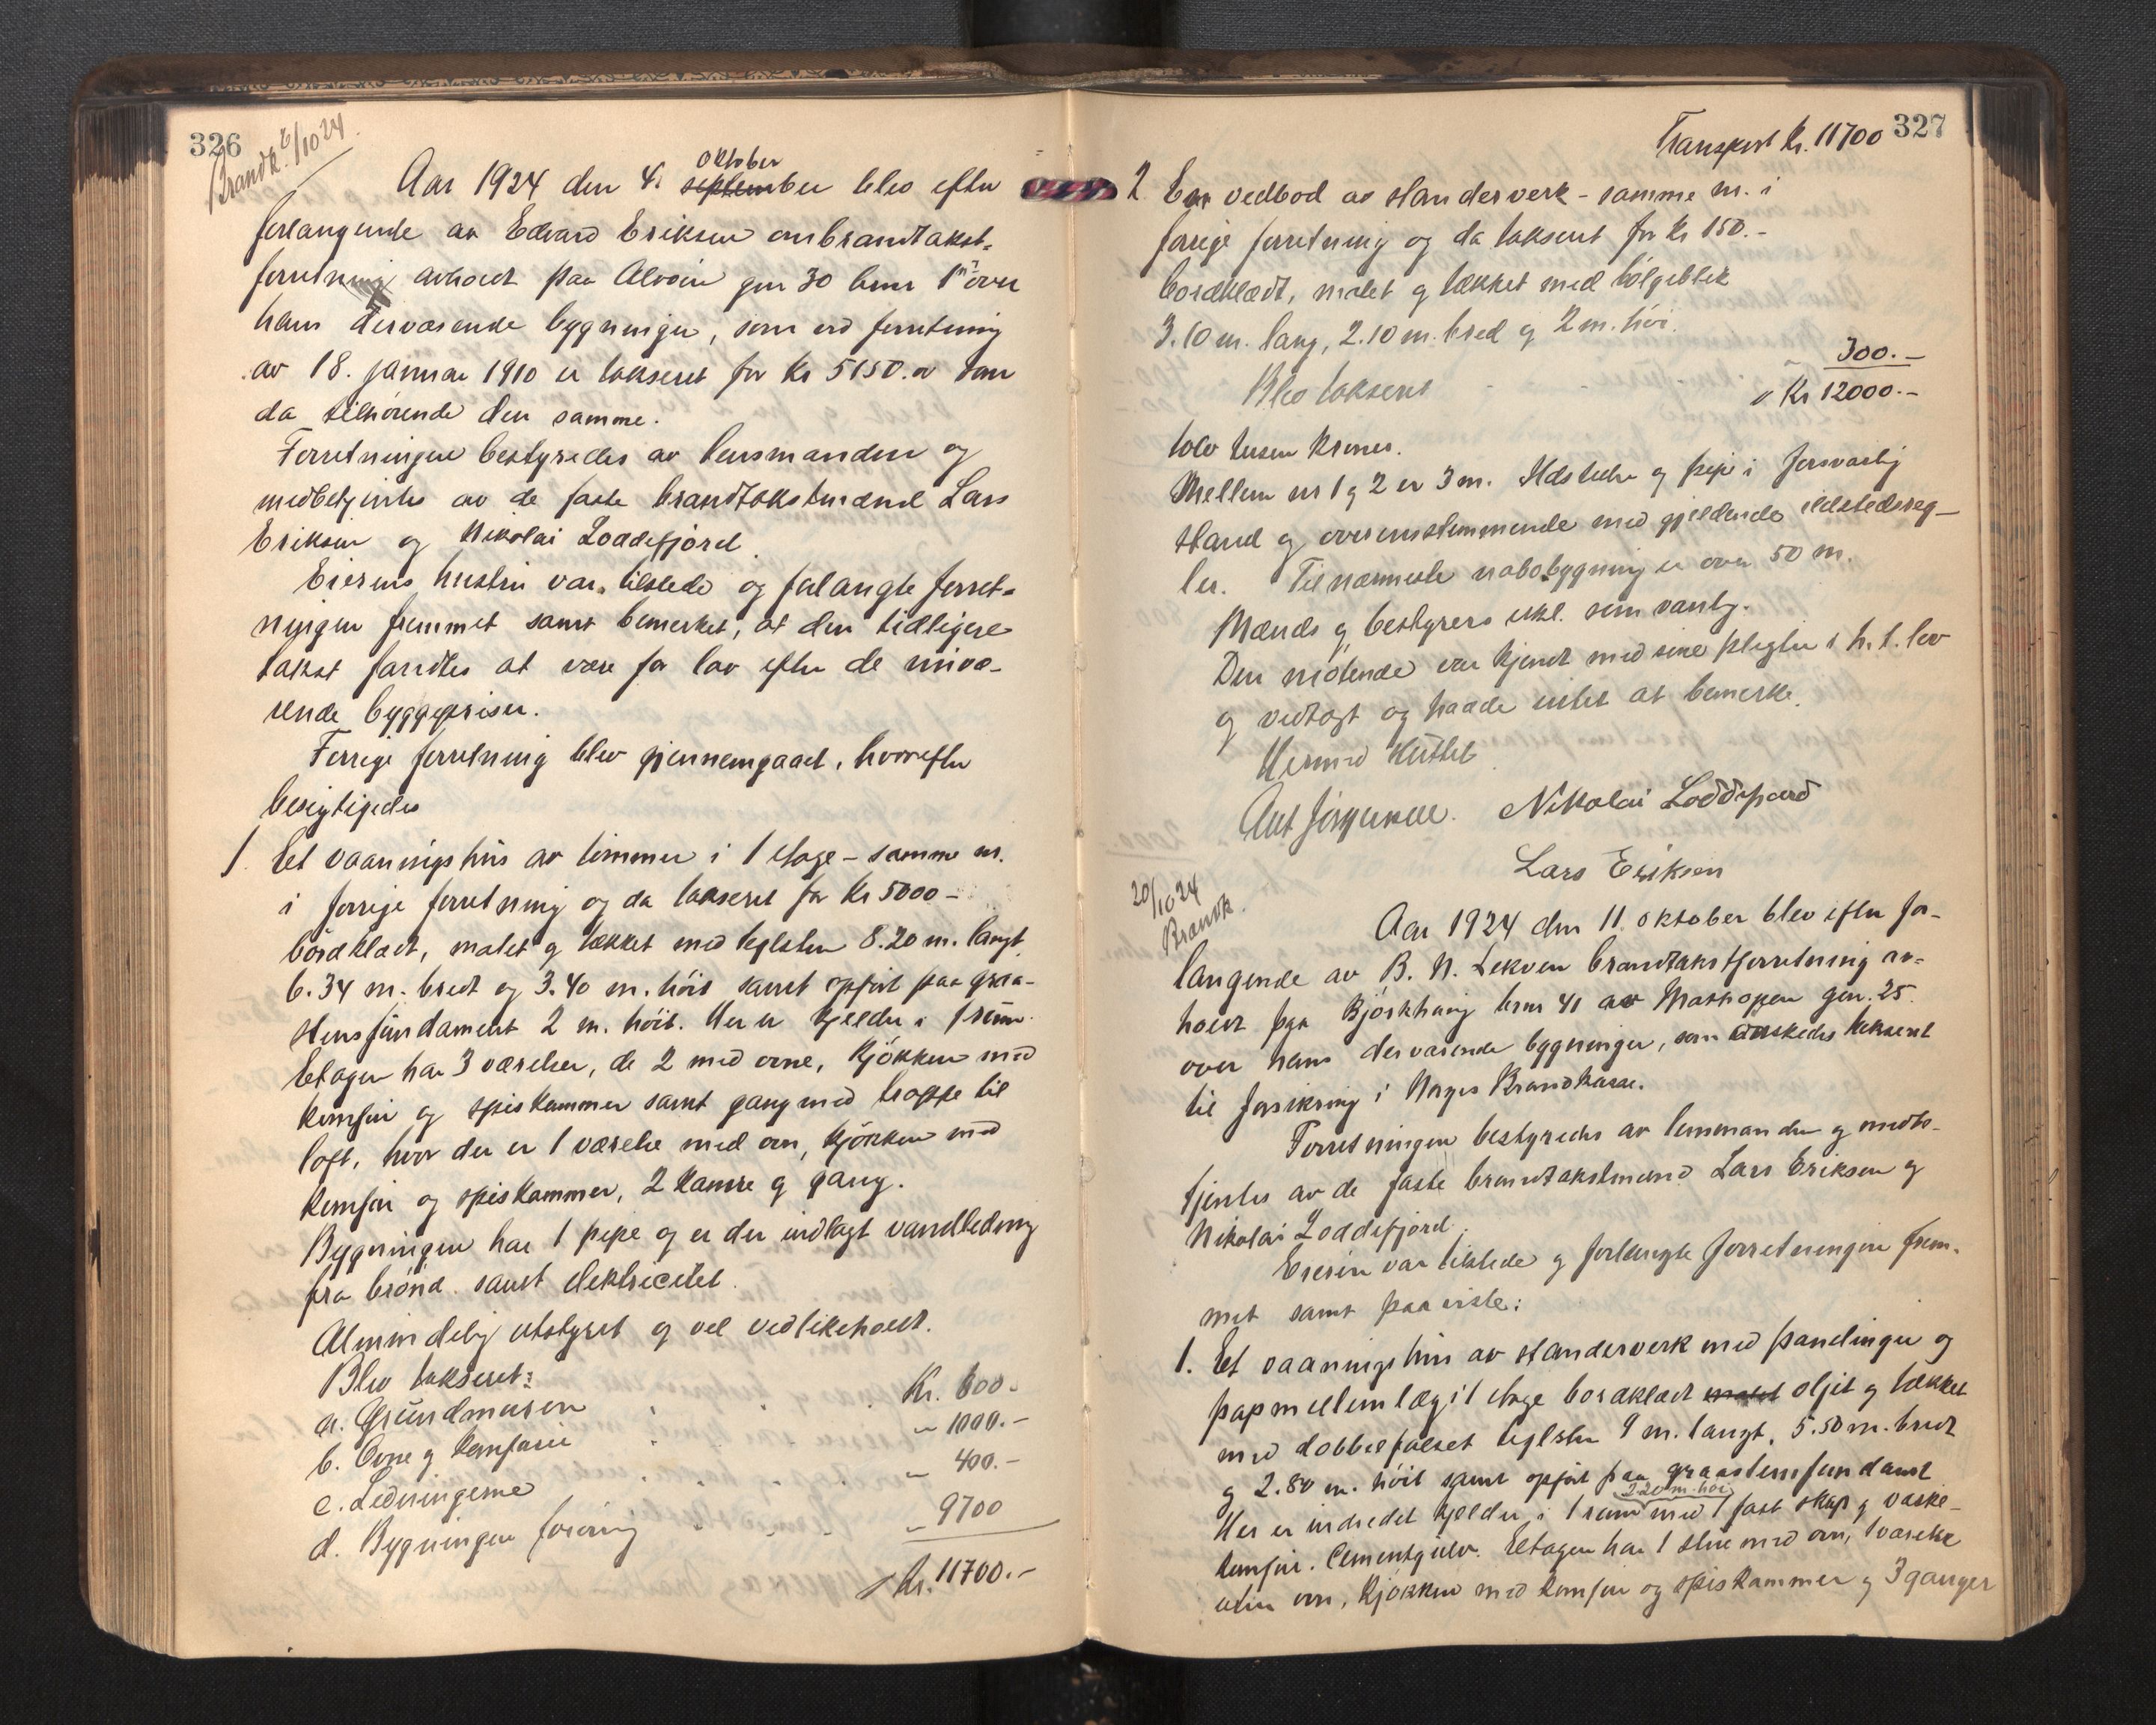 326
Brandk. 6/10 24
Aar 1924 den 4. september oktober blev efter
forlangende av Edvard Eriksen ombrandtakst-
forretning avholdt paa Alvøen gnr 30 brnr 1 over
hans derværende bygninger, som ved forretning
av 18. januar 1910 er takseret for Kr 5150.
da tilhørende den samme.
Forretningen bestyredes av lensmanden og
medbetjentes av de faste brandtakstmænd Lars
Eriksen og Nikolai Loddefjord.
Eierens hustru var tilstede og forlangte forret-
ningen fremmet samt bemerket, at den tidligere
takst fandtes at være for lav efter de nuvæ-
rende byggepriser.
Forrige forretning blev gjennemgaaet, hvorefter
besigtigedes
1. Et vaaningshus av tømmer i 1 etage - samme nr.
i forrige forretning og da takseret for Kr 5000 -
bordklædt, malet og tækket med teglsten 8.20 m. langt,
6.34 m. bredt og 3.40 m. høit samt opført paa graa-
stensfundament 2 m. høit. Her er kjelder i 1 rum.
Etagen har 3 værelser, de 2 med ovne, kjøkken med
komfur og spiskammer samt gang med trappe til
loft, hvor der er 1 værelse med ovn, kjøkken med
komfur og spiskammer, 2 kamre og gang.
Bygningen har 1 pipe og er der indlagt vandledning
fra brønd samt elektricitet.
Almindelig utstyret og vel vedlikeholdt.
Blev takseret:
a. Grundmuren Kr. 600.-
b. Ovne og komfurer " 1000.-
c. Ledningerne " 400.-
d. Bygningen forøvrig " 9700
Kr. 11700.-
327
Transport Kr. 11700
2. En vedbod av standerverk - samme nr. i
forrige forretning og da takseret for Kr 150.-
bordklædt, malet og tækket med bølgeblik
3.10 m. lang, 2.10 m. bred og 2 m. høi.
Blev takseret 300.-
Kr 12000.-
tolv tusen kroner.
Mellem nr 1 og 2 er 3 m. Ildsteder og pipe i forsvarlig
stand og overensstemmende med gjældende ildstedsreg-
ler. Til nærmeste nabobygning er over 50 m.
Mænds og bestyrers erkl. som vanlig.
Den møtende var kjendt med sine pligter i h. t. lov
og vedtægt og hadde intet at bemerke.
Hermed sluttet
Ant Jørgensen. Nikolai Loddefjord
Lars Eriksen
20/10 24
Brandk.
Aar 1924 den 11. oktober blev efter for-
langende av B. N. Lekven brandtakstforretning av-
holdt paa Bjørkhaug brnr 41 av Mathopen gnr. 25.
over hans derværende bygninger, som ønskedes takseret
til forsikring i Norges Brandkasse.
Forretningen bestyredes av lensmanden og medbe-
tjentes av de faste brandtakstmænd Lars Eriksen og
Nikolai Loddefjord.
Eieren var tilstede og forlangte forretningen frem-
met samt paaviste:
1. Et vaaningshus av standerverk med panelinger og
papmellemlæg i 1 etage bordklædt malet oljet og tækket
med dobbelfalset teglsten 9 m. langt, 5.50 m. bredt
og 2.80 m. høit samt opført paa graastensfundament
2.20 m. høi
Her er indredet kjelder i 1 rum med 1 fast skap og vaske-
komfur. Cementgulv. Etagen har 1 stue med ovn, 1 værelse
uten ovn, kjøkken med komfur og spiskammer og 3 ganger